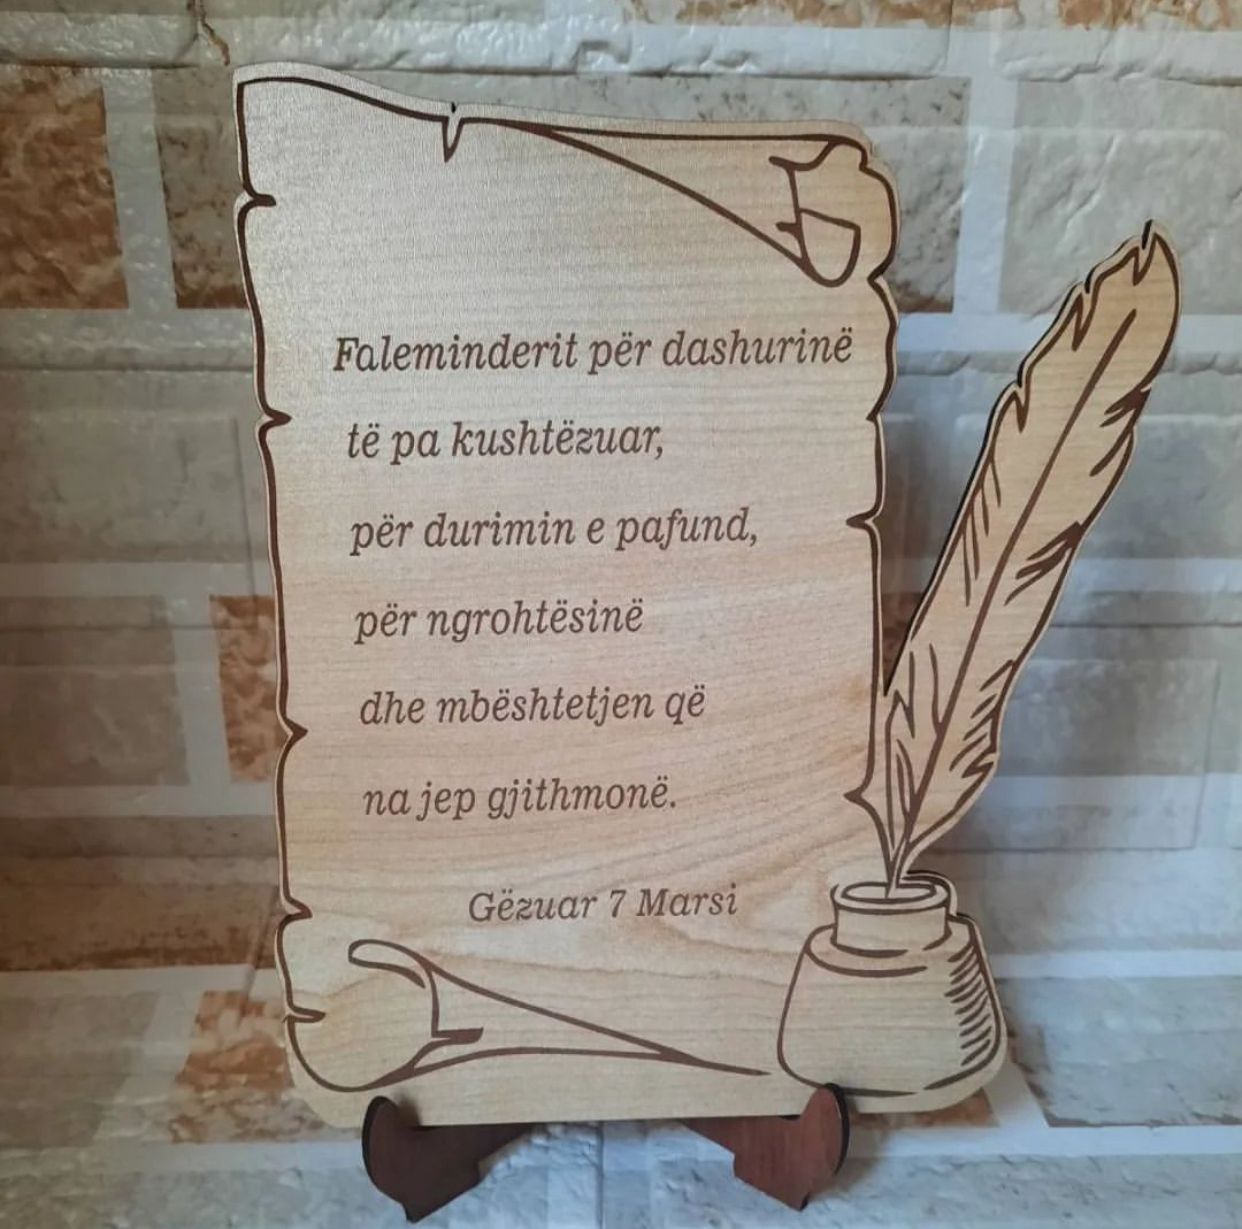 Faleminderit për dashurinë
të pa kushtëzuar,
për durimin e pafund,
për ngrohtësinë
dhe mbështetjen që
na jep gjithmonë.
Gëzuar 7 Marsi